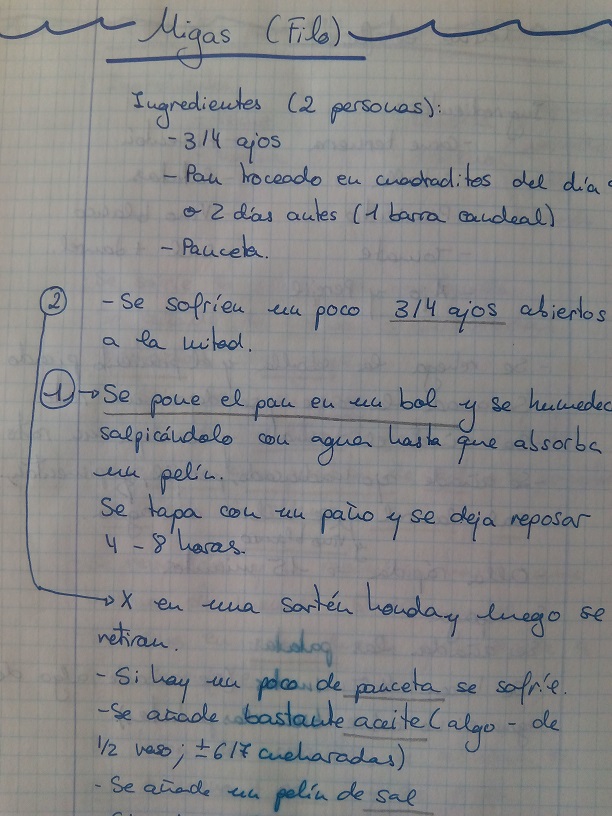 Migas (Filo)
Ingredientes (2 personas):
- 3/4 ajos
- Pan troceado en cuadraditos del día
o 2 días antes (1 barra candeal)
- Panceta.
2 - Se sofríen un poco 3/4 ajos abiertos
a la mitad.
1 → Se pone el pan en un bol y se humedec
salpicándolo con agua hasta que absorba
un pelín.
Se tapa con un paño y se deja reposar
4 - 8 horas.
→ X en una sartén honda y luego se
retiran.
- Si hay un poco de panceta se sofríe.
- Se añade bastante aceite (algo - de
1/2 vaso; ± 6/7 cucharadas)
- Se añade un pelín de sal